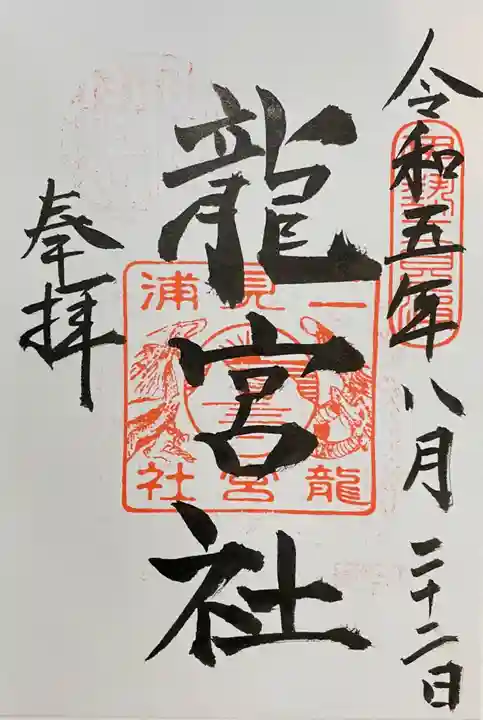 令和五年八月二十二日
龍宮社
奉拝
二見浦
龍宮社